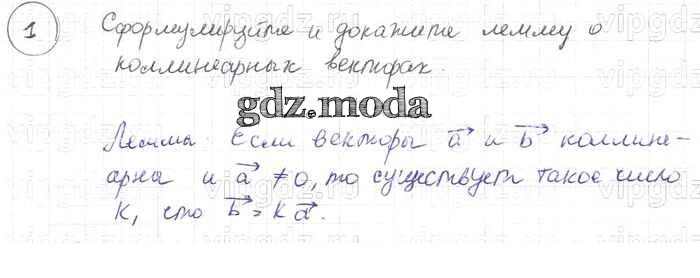 1 Сформулируйте и докажите лемму о
коллинеарных векторах.
gdz.moda
Лемма. Если векторы a⃗ и b⃗ коллине-
арна и a⃗ ≠ 0, то существует такое число
К, что b⃗ = k a⃗.